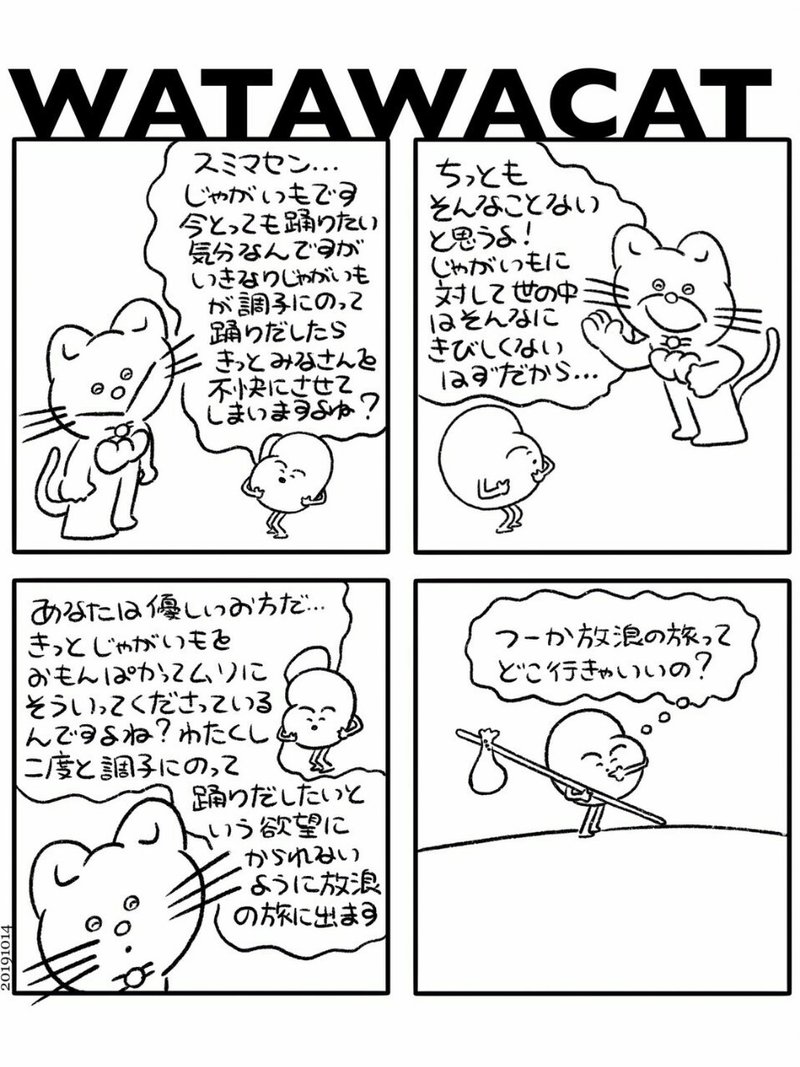 WATAWACAT
スミマセン…
じゃがいもです
今とっても踊りたい
気分なんですが
いきなりじゃがいも
が調子にのって
踊りだしたら
きっとみなさんを
不快にさせて
しまいますよね？
ちっとも
そんなことない
と思うよ！
じゃがいもに
対して世の中
はそんなに
きびしくない
はずだから…
あなたは優しいお方だ…
きっとじゃがいもを
おもんぱかってムリに
そういってくださっている
んですよね？わたくし
二度と調子にのって
踊りだしたいと
いう欲望に
かられない
ように放浪
の旅に出ます
つーか放浪の旅って
どこ行きゃいいの？
20191014